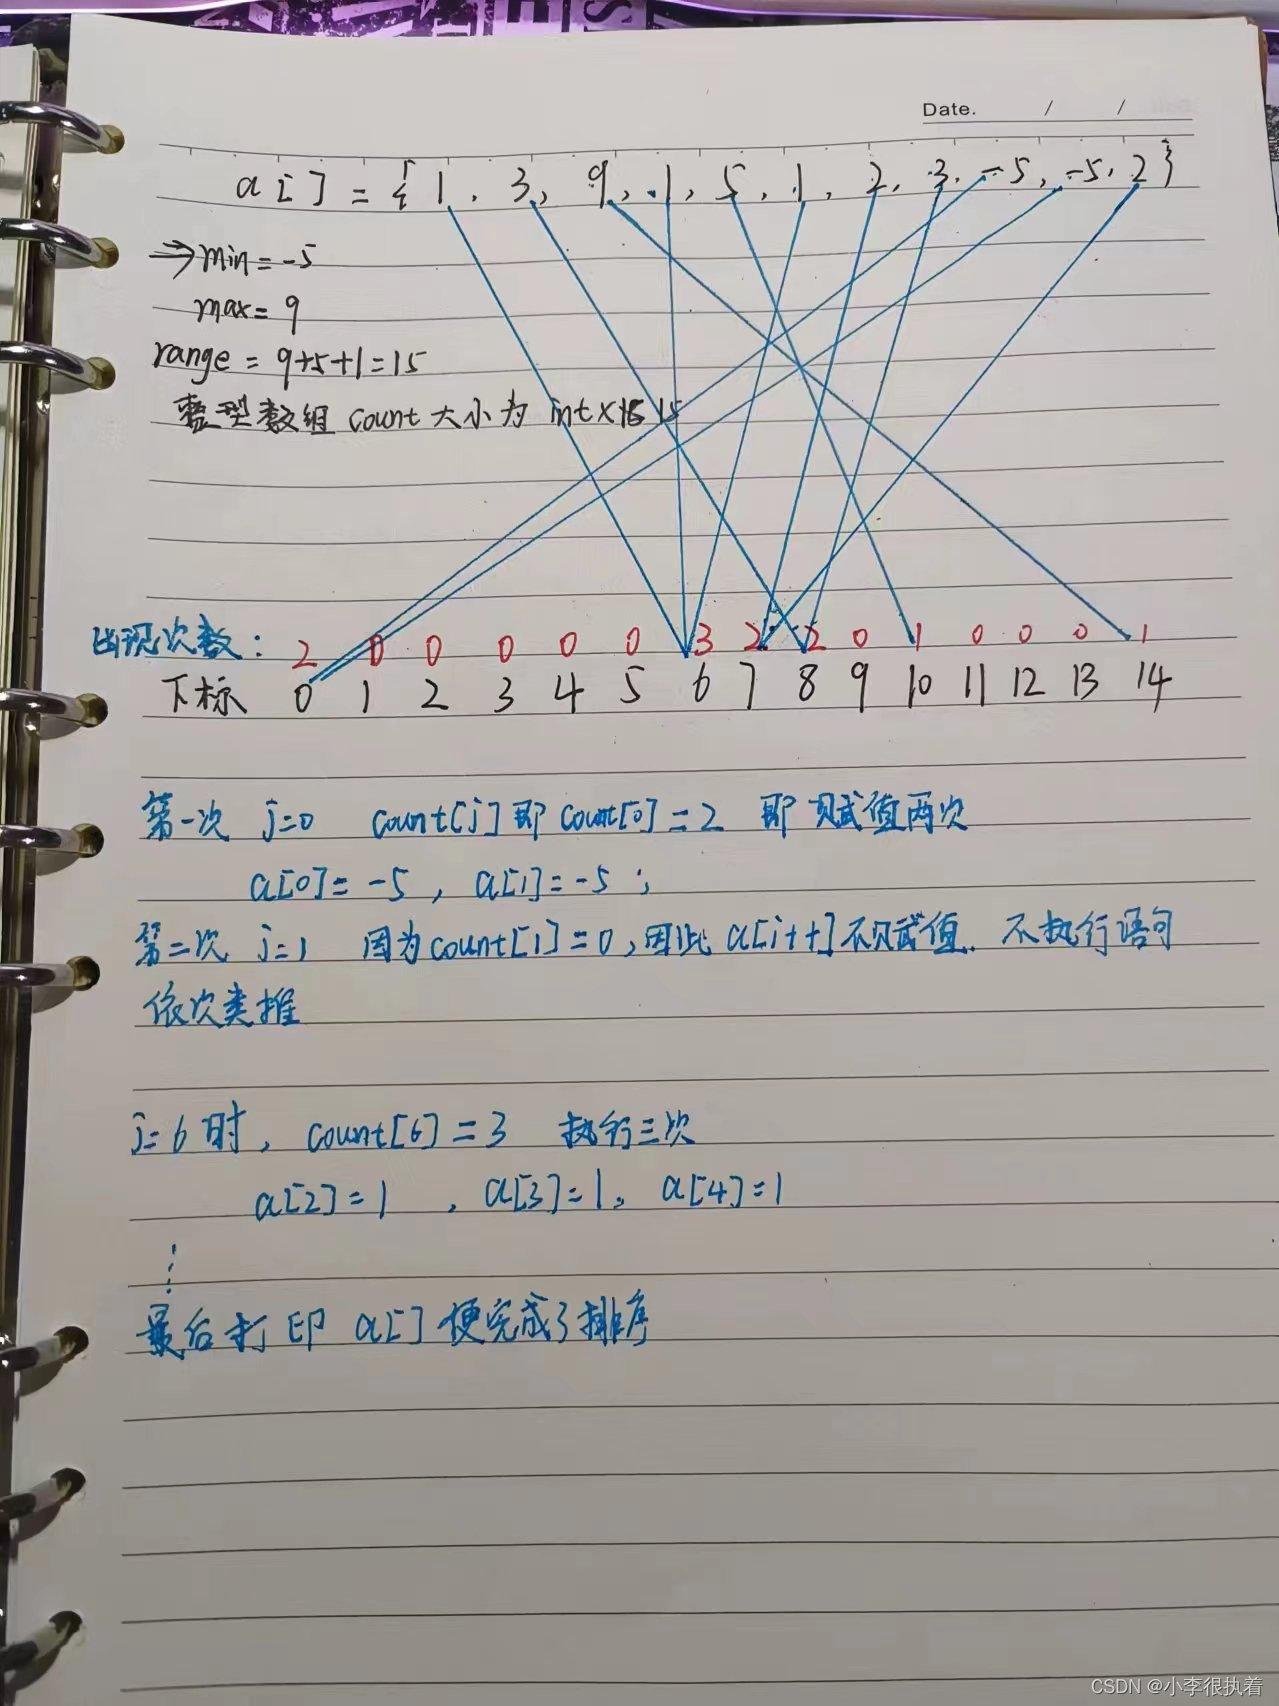 Date. / /
a[] = {1, 3, 9, 1, 5, 1, 2, 3, -5, -5, 2}
⇒ min = -5
max = 9
range = 9+5+1=15
整型数组 count 大小为 int × 15
出现次数: 2 0 0 0 0 0 3 2 2 0 1 0 0 0 1
下标 0 1 2 3 4 5 6 7 8 9 10 11 12 13 14
第一次 j=0 count[j] 即 count[0] = 2 即 赋值两次
a[0] = -5 , a[1] = -5 ;
第二次 j=1 因为count[1]=0,因此 a[i++]不赋值. 不执行语句
依次类推
j=6时, count[6] = 3 执行三次
a[2]=1 , a[3]=1, a[4]=1
⋮
最后打印 a[] 便完成了排序
CSDN @小李很执着